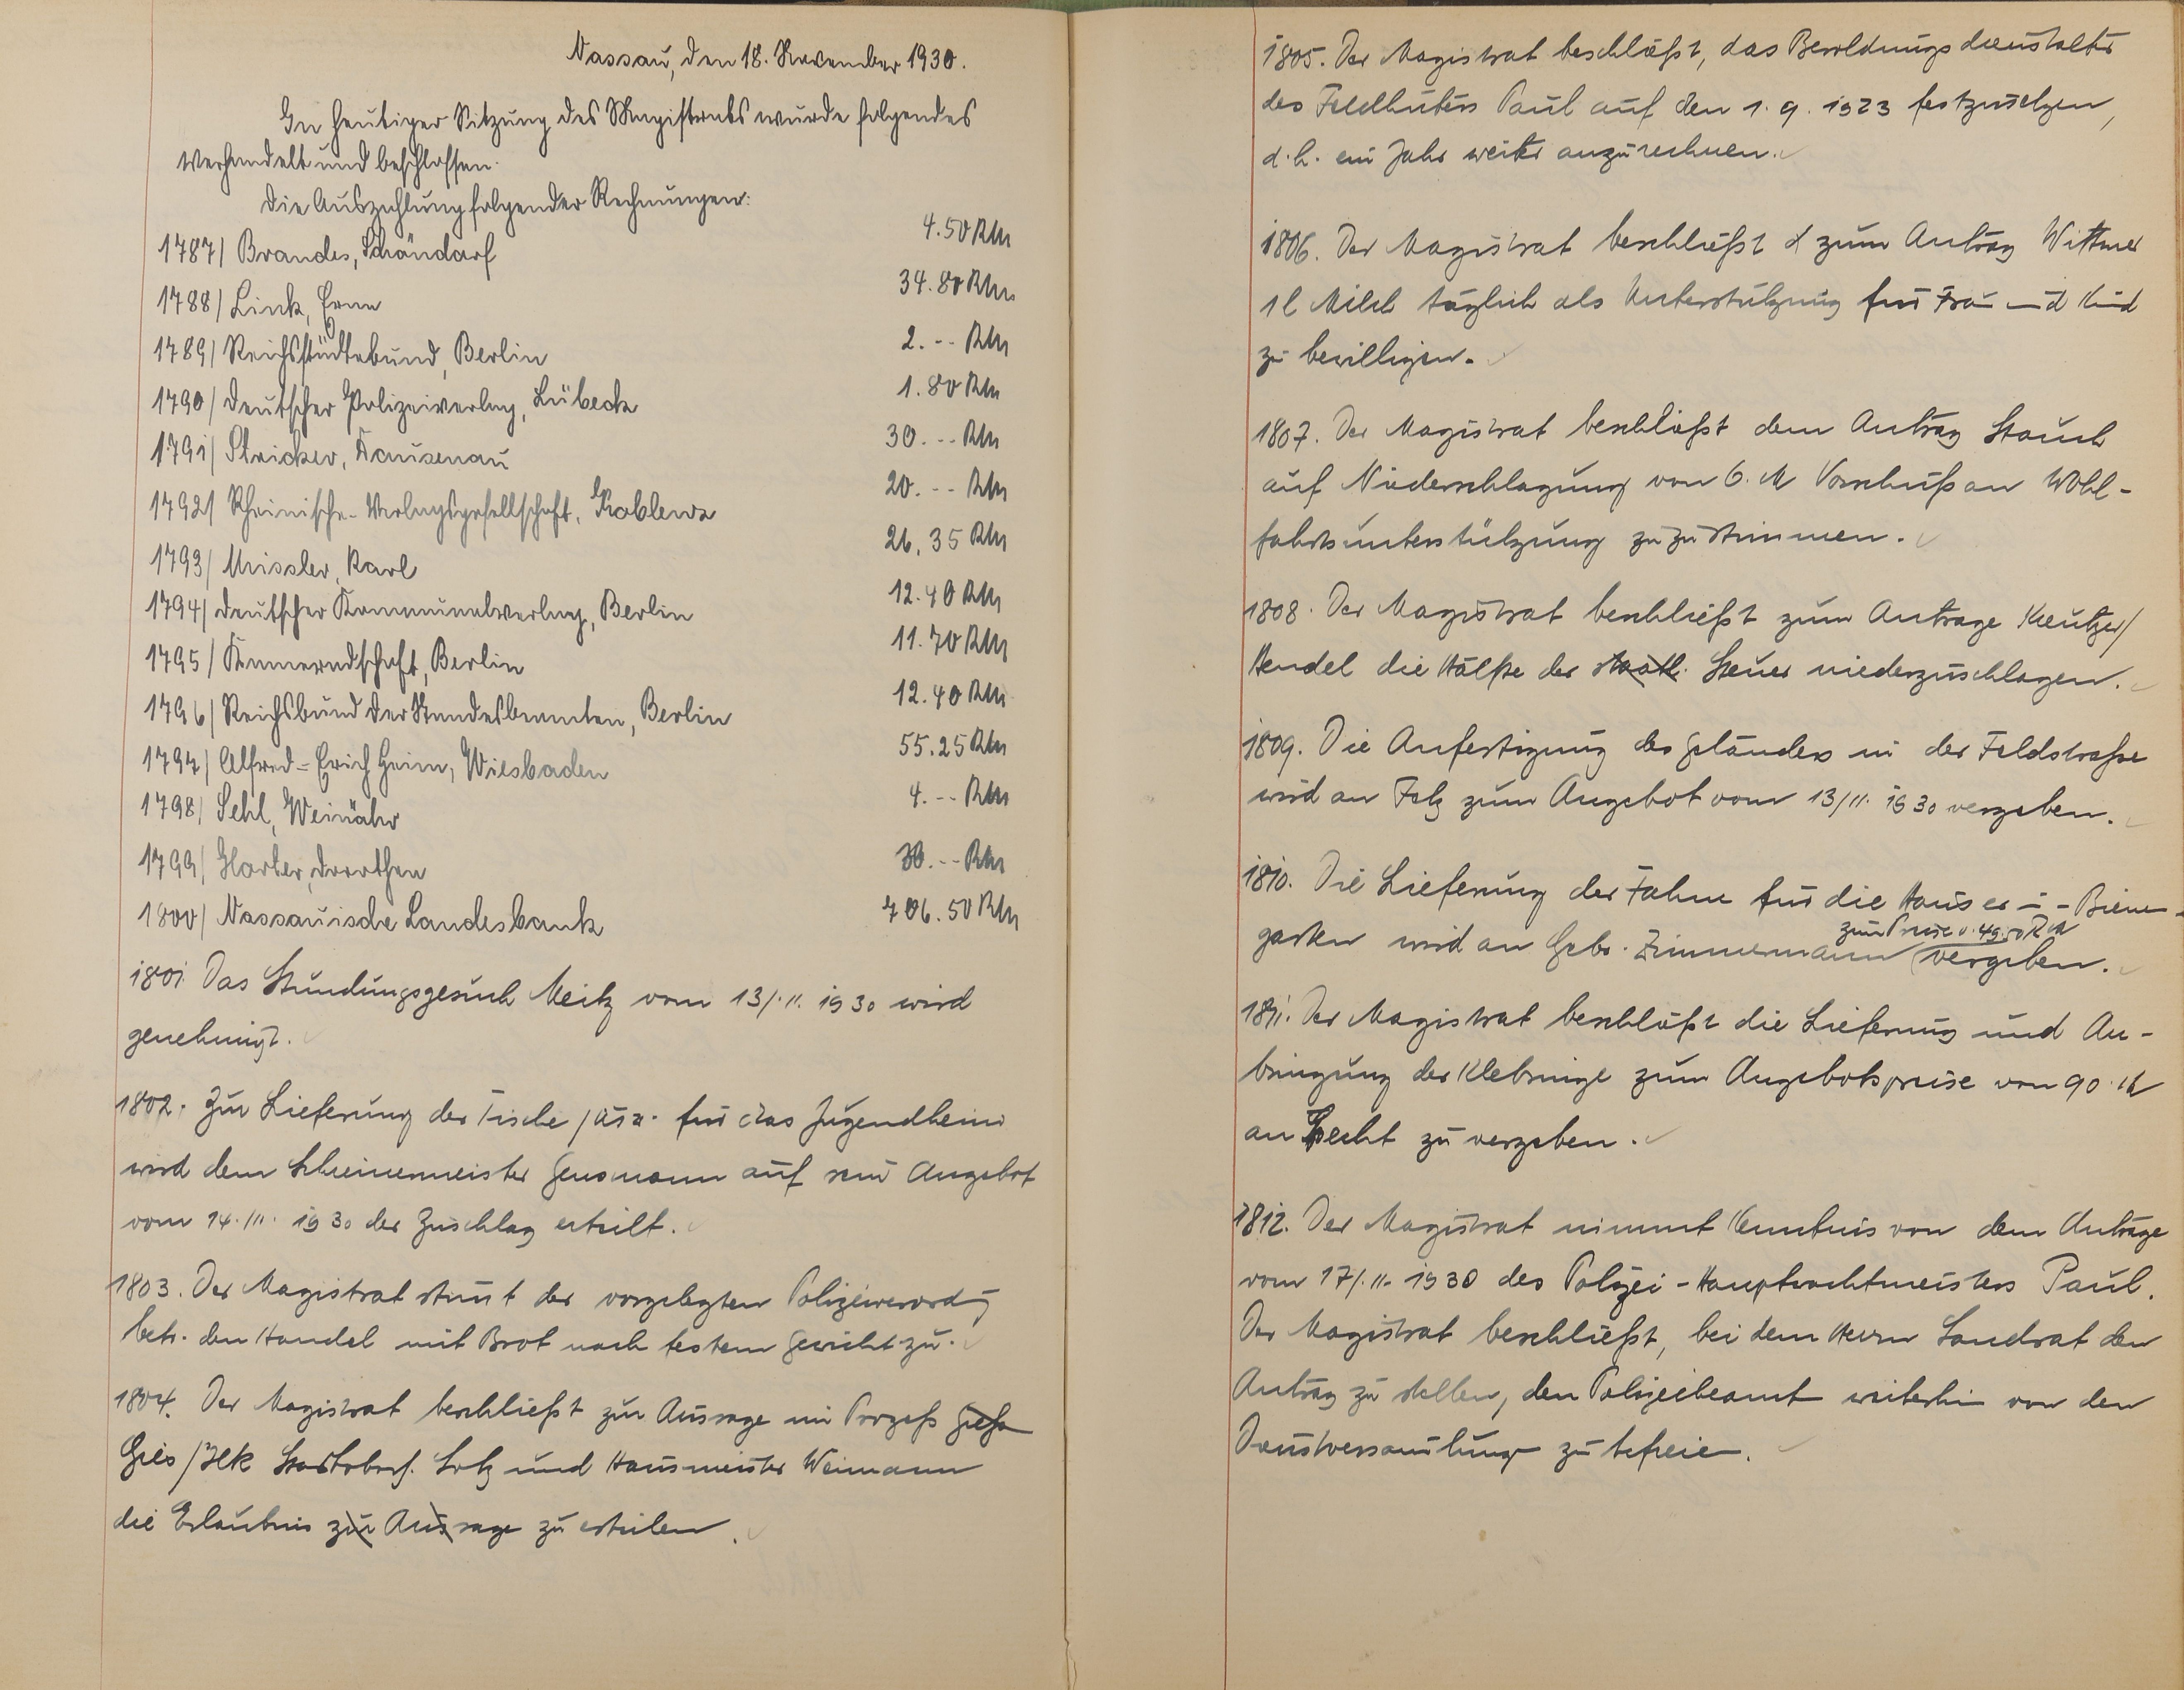 Nassau, den 18. November 1930.
In heutiger Sitzung des Magistrats wurde folgendes
verhandelt und beschlossen.
Die Auszahlung folgender Rechnungen:
1787/ Brandes, Schöndorf 4.50 RM
1788/ Link, Erna 34.80 RM
1789/ Reichsstädtebund, Berlin 2.-- RM
1790/ Deutscher Polizeiverlag, Lübeck 1.80 RM
1791/ Stricker, Dausenau 30.-- RM
1792/ Rheinische-Verlagsgesellschaft, Koblenz 20.-- RM
1793/ Missler, Karl 26.35 RM
1794/ Deutscher Kommunalverlag, Berlin 12.40 RM
1795/ Kameradschaft, Berlin 11.70 RM
1796/ Reichsbund der Standesbeamten, Berlin 12.40 RM
1797/ Alfred-Erich Heim, Wiesbaden 55.25 RM
1798/ Sehl, Weinähr 4.-- RM
1799/ Dorothea 30.-- RM
1800/ Nassauische Landesbank 706.50 RM
1801. Das Stundungsgesuch Meitz vom 13/.11. 1930 wird
genehmigt.
1802. Zur Lieferung der Tische für das Jugendheim
wird dem Schreinermeister Gensmann auf sein Angebot
vom 14./11. 1930 der Zuschlag erteilt.
1803. Der Magistrat stimmt der vorgelegten Polizeiverordg
betr. den Handel mit Brot nach festem Gewicht zu.
1804. Der Magistrat beschließt zur Aussage im Prozeß
Gies / Lotz und Hausmeister Weimann
die Erlaubnis zur Aussage zu erteilen.
1805. Der Magistrat beschließt, das Besoldungsdienstalter
des Feldhüters Paul auf den 1. 9. 1923 festzusetzen,
d.h. ein Jahr weiter anzurechnen.
1806. Der Magistrat beschließt zum Antrag Wittmer
1 l Milch täglich als Unterstützung für Frau und Kind
zu bewilligen.
1807. Der Magistrat beschließt dem Antrag Stauch
auf Niederschlagung von 6. M Vorschuß an Wohl-
fahrtsunterstützung zuzustimmen.
1808. Der Magistrat beschließt zum Antrage Kreutzer/
Hendel die Hälfte der staatl. Steuer niederzuschlagen.
1809. Die Anfertigung des Geländers in der Feldstraße
wird an Felz zum Angebot vom 13/11. 1930 vergeben.
1810. Die Lieferung der Fahne für die Häuser Bienen-
garten wird an Gebr. Zimmermann zum Preise v. 49.50 RM vergeben.
1811. Der Magistrat beschließt die Lieferung und An-
bringung der Klebringe zum Angebotspreise von 90 M
an Specht zu vergeben.
1812. Der Magistrat nimmt Kenntnis von dem Antrage
vom 17/.11. 1930 des Polizei-Hauptwachtmeisters Paul.
Der Magistrat beschließt, bei dem Herrn Landrat den
Antrag zu stellen, den Polizeibeamt weiterhin von den
Dienstversammlungen zu befreien.